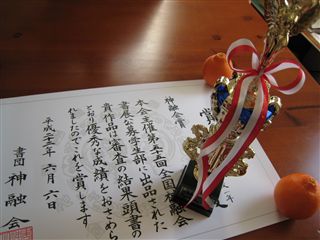 神融会賞
賞
本会主催第五五回全国神融会
書展公募学生部に出品された
貴作品は審査の結果頭書の
とおり優秀な成績をおさめら
れましたのでこれを賞します
平成二三年 六月 六日
書団 神融会